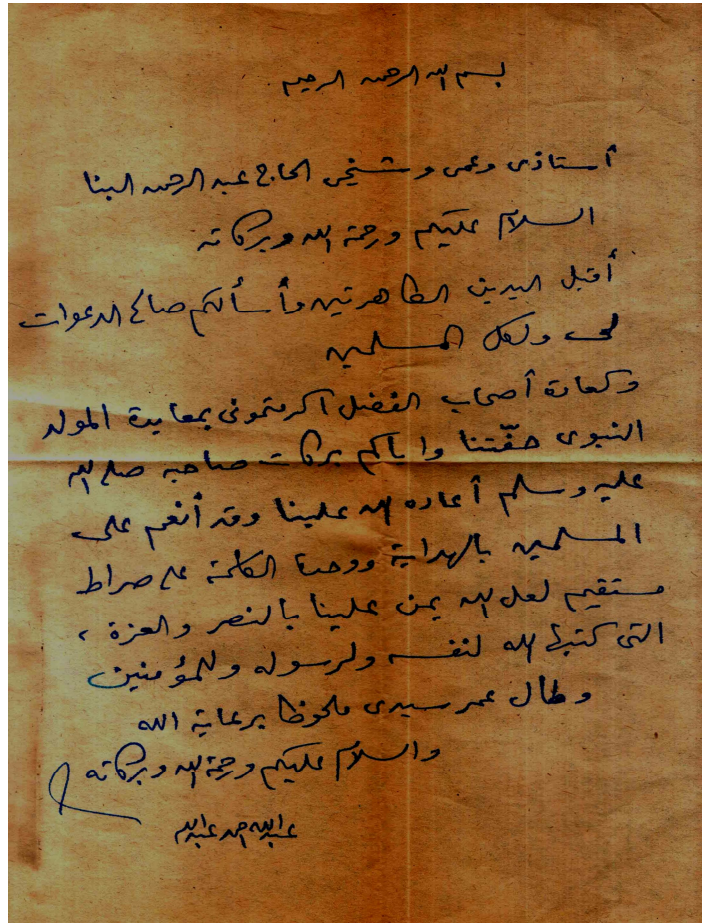 بسم الله الرحمن الرحيم
أستاذى وعمى وشيخى الحاج عبد الرحمن البنا
السلام عليكم ورحمة الله وبركاته
أقبل اليدين الطاهرتين وأسألكم صالح الدعوات
لى ولكل المسلمين
وكعادة أصحاب الفضل أكرمتمونى بمعايدة المولد
النبوى حفّتنا واياكم بركات صاحبه صلى الله
عليه وسلم أعاده الله علينا وقد أنعم على
المسلمين بالهداية ووحدة الكلمة على صراط
مستقيم لعل الله يمن علينا بالنصر والعزة ،
التى كتبها الله لنفسه ولرسوله وللمؤمنين
وطال عمر سيدى ملحوظا برعاية الله
والسلام عليكم ورحمة الله وبركاته
عبد الله أحمد عبد الله